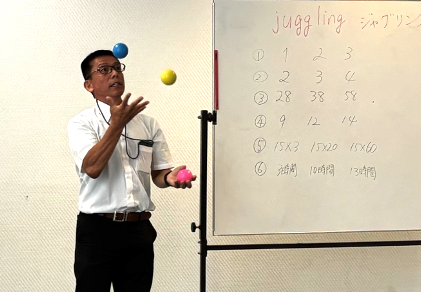 juggling ジャグリング
① 1 2 3
② 2 3 4
③ 28 38 58
④ 9 12 14
⑤ 15×3 15×20 15×60
⑥ 時間 10時間 13時間